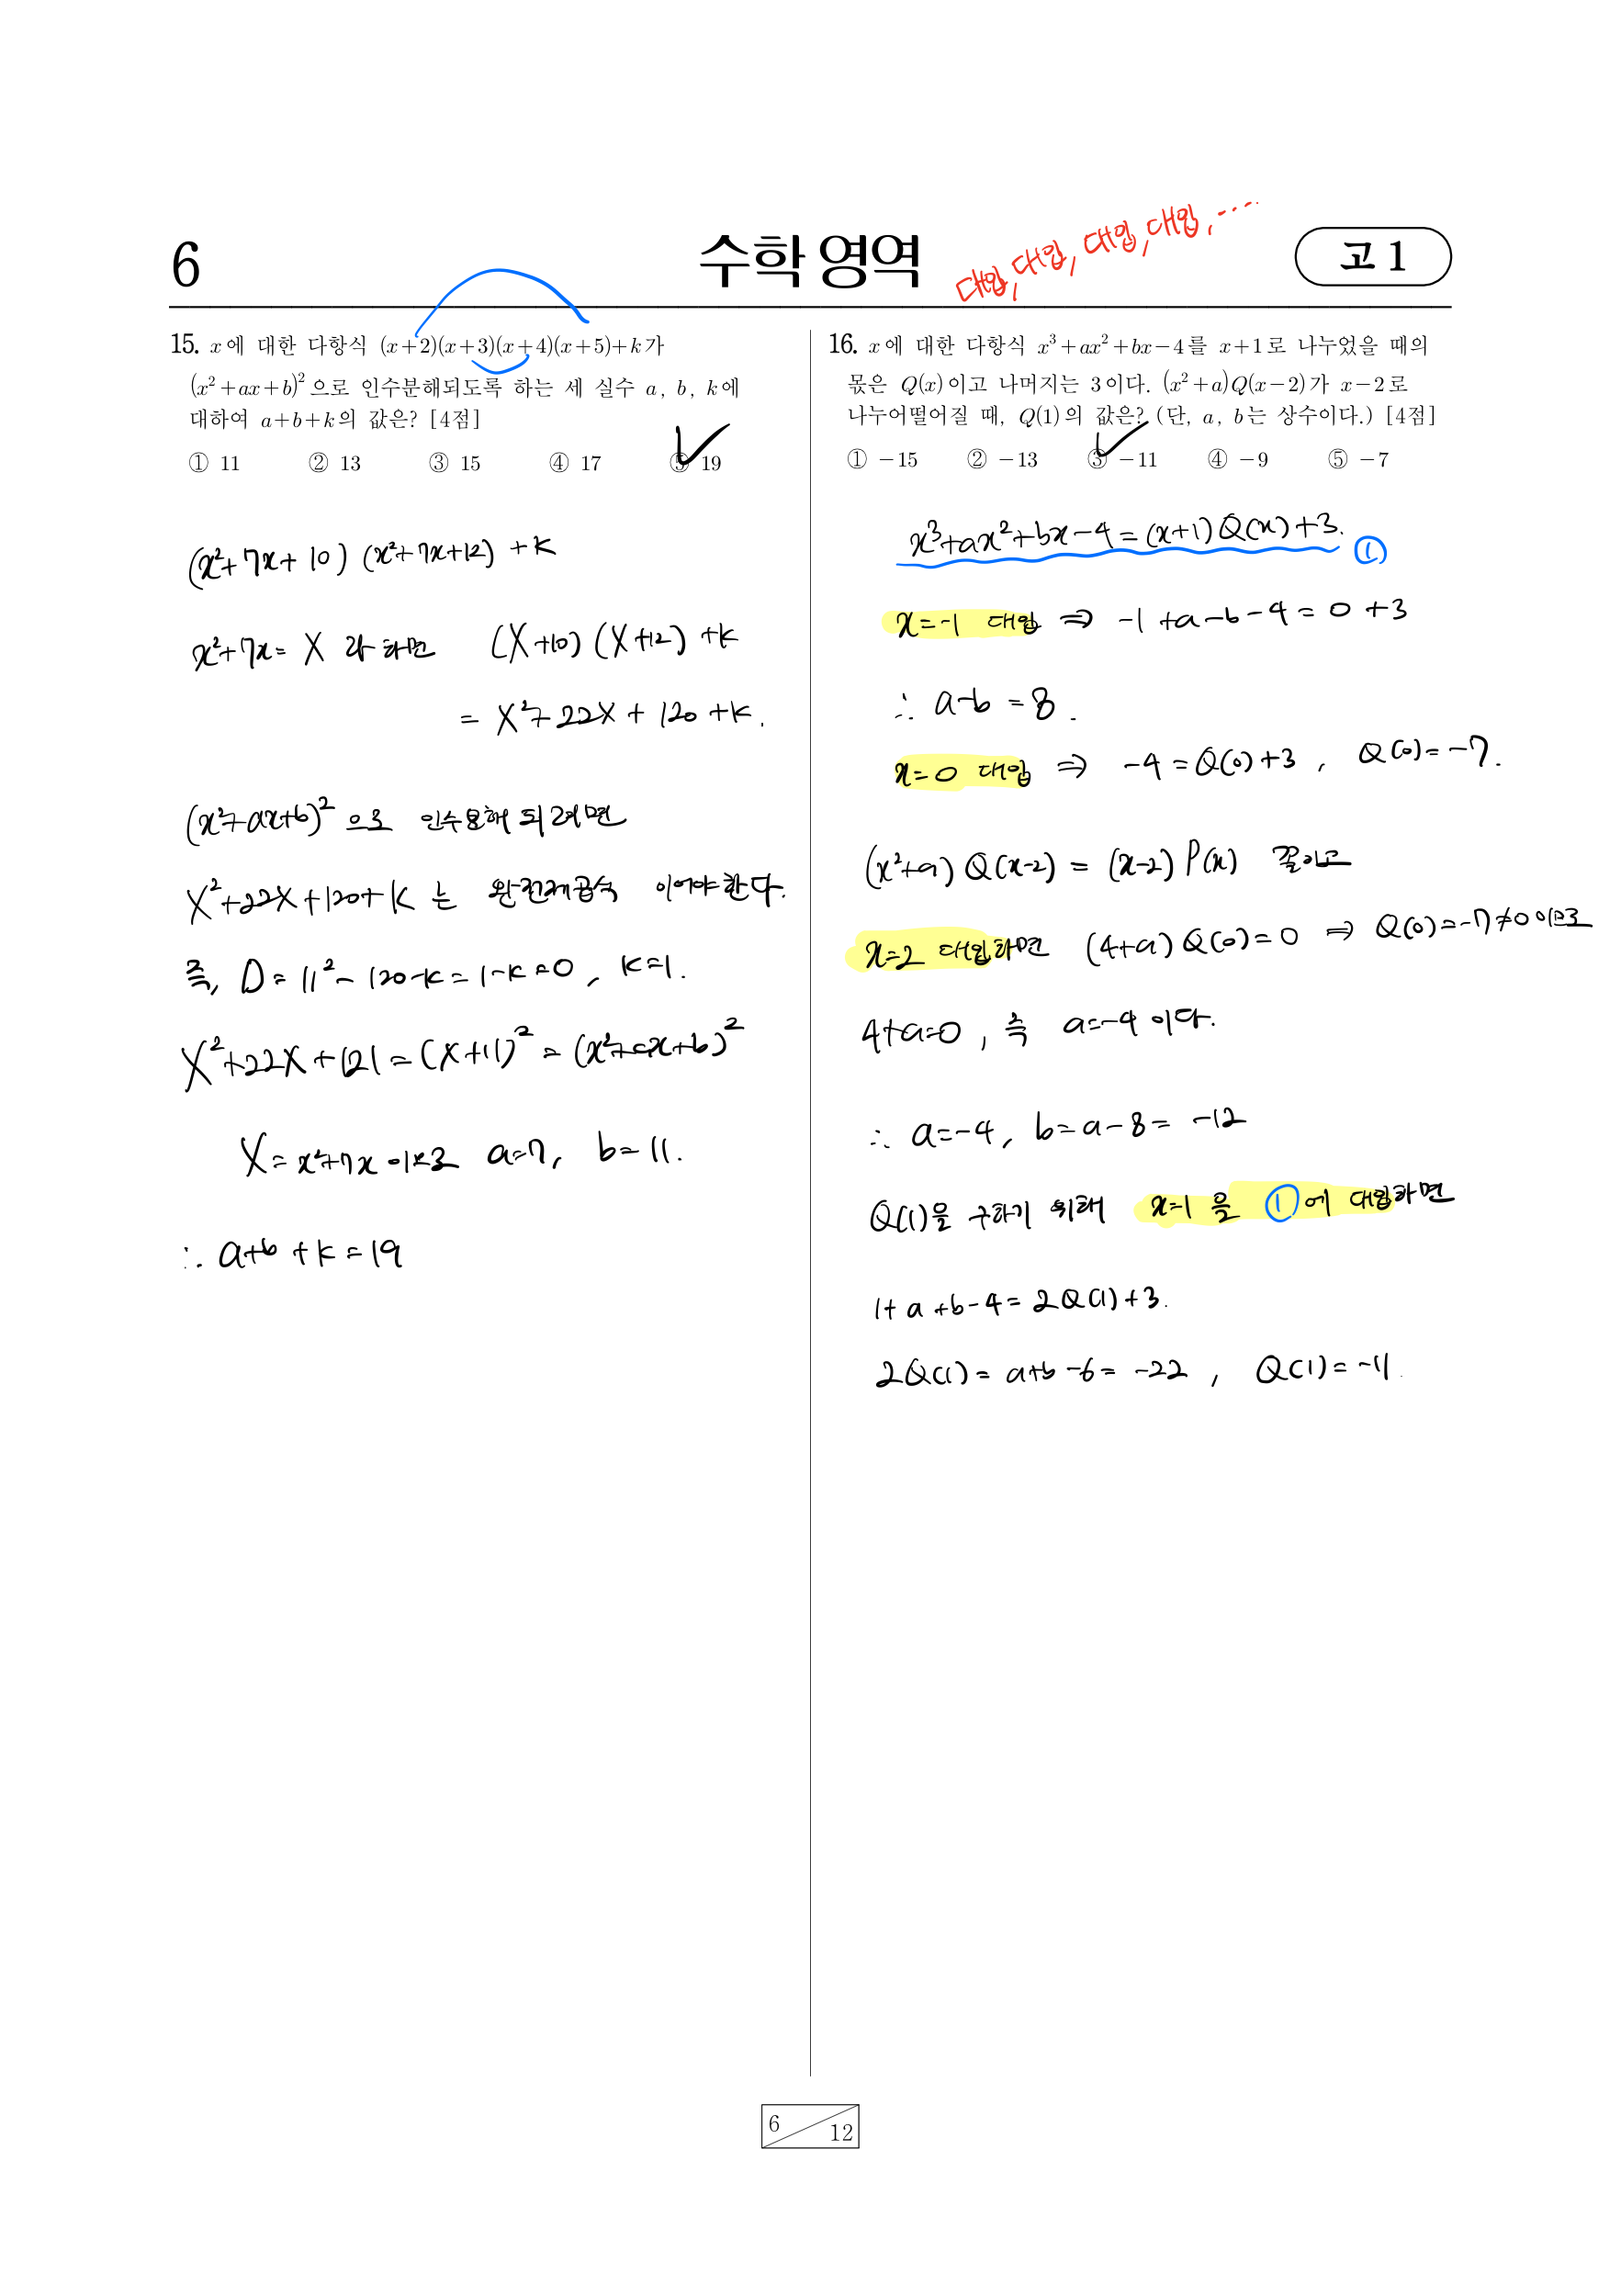 6
수학 영역
대입, 대입, 대입, 대입, ....
고 1
15. x에 대한 다항식 (x+2)(x+3)(x+4)(x+5)+k가
(x²+ax+b)²으로 인수분해되도록 하는 세 실수 a, b, k에
대하여 a+b+k의 값은? [4점]
① 11 ② 13 ③ 15 ④ 17 ⑤ 19
(x²+7x+10) (x²+7x+12) +k
x²+7x= X 라 하면 (X+10) (X+12) +k
= X²+22X + 120 +k.
(x²+ax+b)² 으로 인수분해 되려면
X²+22X+120+k 는 완전제곱식 이어야 한다.
즉, D = 11² - 120-k = 1-k=0, k=1.
X²+22X+121 = (X+11)² = (x²+ax+b)²
X = x²+7x 이므로 a=7, b=11.
∴ a+b+k=19
16. x에 대한 다항식 x³+ax²+bx-4를 x+1로 나누었을 때의
몫은 Q(x)이고 나머지는 3이다. (x²+a)Q(x-2)가 x-2로
나누어떨어질 때, Q(1)의 값은? (단, a, b는 상수이다.) [4점]
① -15 ② -13 ③ -11 ④ -9 ⑤ -7
x³+ax²+bx-4 = (x+1)Q(x)+3. ①
x=-1 대입 ⇒ -1+a-b-4 = 0+3
∴ a-b = 8.
x=0 대입 ⇒ -4=Q(0)+3, Q(0)=-7.
(x²+a) Q(x-2) = (x-2) P(x) 꼴이고
x=2 대입하면 (4+a)Q(0)=0 ⇒ Q(0)=-7≠0 이므로
4+a=0, 즉 a=-4 이다.
∴ a=-4, b=a-8= -12
Q(1)을 구하기 위해 x=1 을 ①에 대입하면
1+a+b-4= 2Q(1)+3.
2Q(1)= a+b-6= -22, Q(1)= -11.
6 12